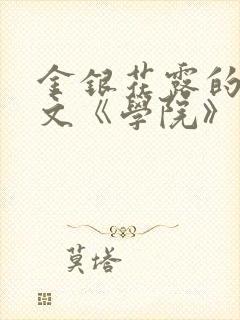 金銀花露的
文《學院》
莫塔